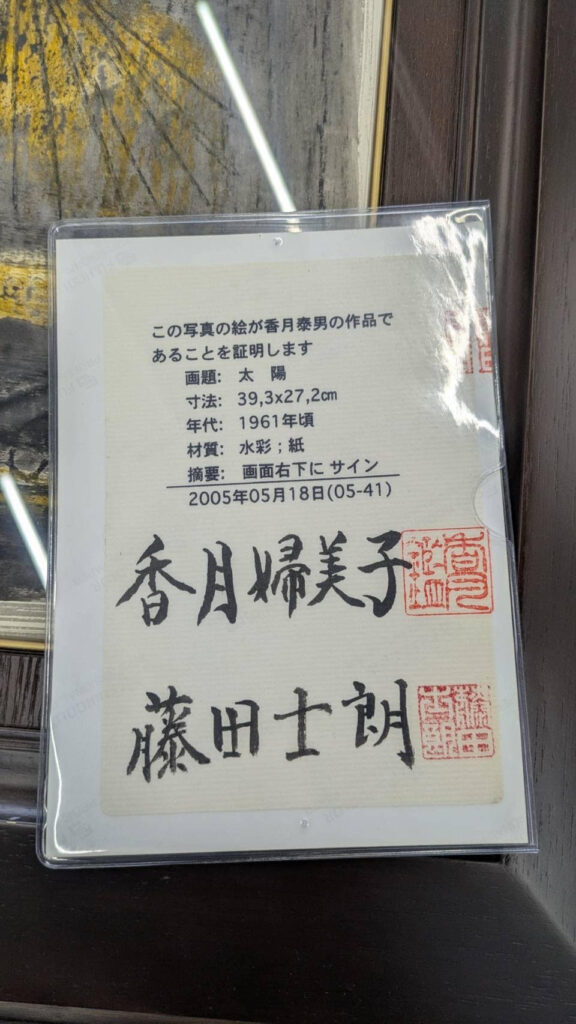 この写真の絵が香月泰男の作品で
あることを証明します
画題: 太 陽
寸法: 39,3x27,2㎝
年代: 1961年頃
材質: 水彩;紙
摘要: 画面右下に サイン
2005年05月18日(05-41)
香月婦美子
藤田士朗